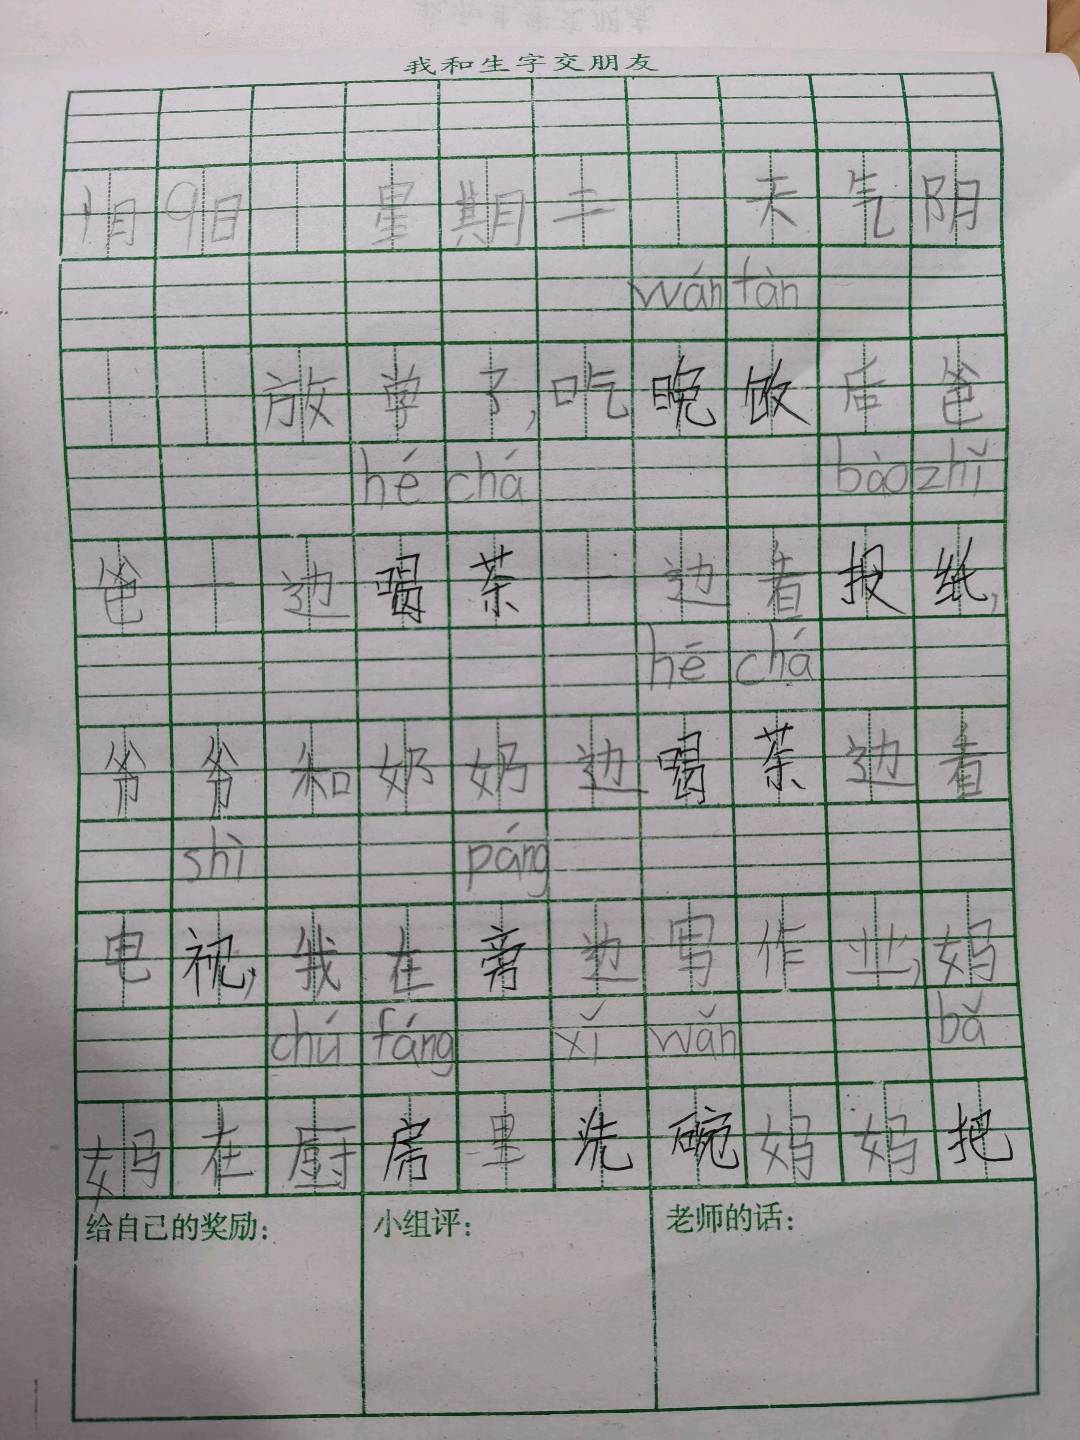 我和生字交朋友
1月9日 星期二 天气阴
wán fàn
放学了,吃晚饭后爸
hé chá bào zhǐ
爸一边喝茶一边看报纸,
hē chá
爷爷和奶奶边喝茶边看
shì páng
电视,我在旁边写作业,妈
chú fáng xǐ wǎn bǎ
妈在厨房里洗碗妈妈把
给自己的奖励:
小组评:
老师的话: